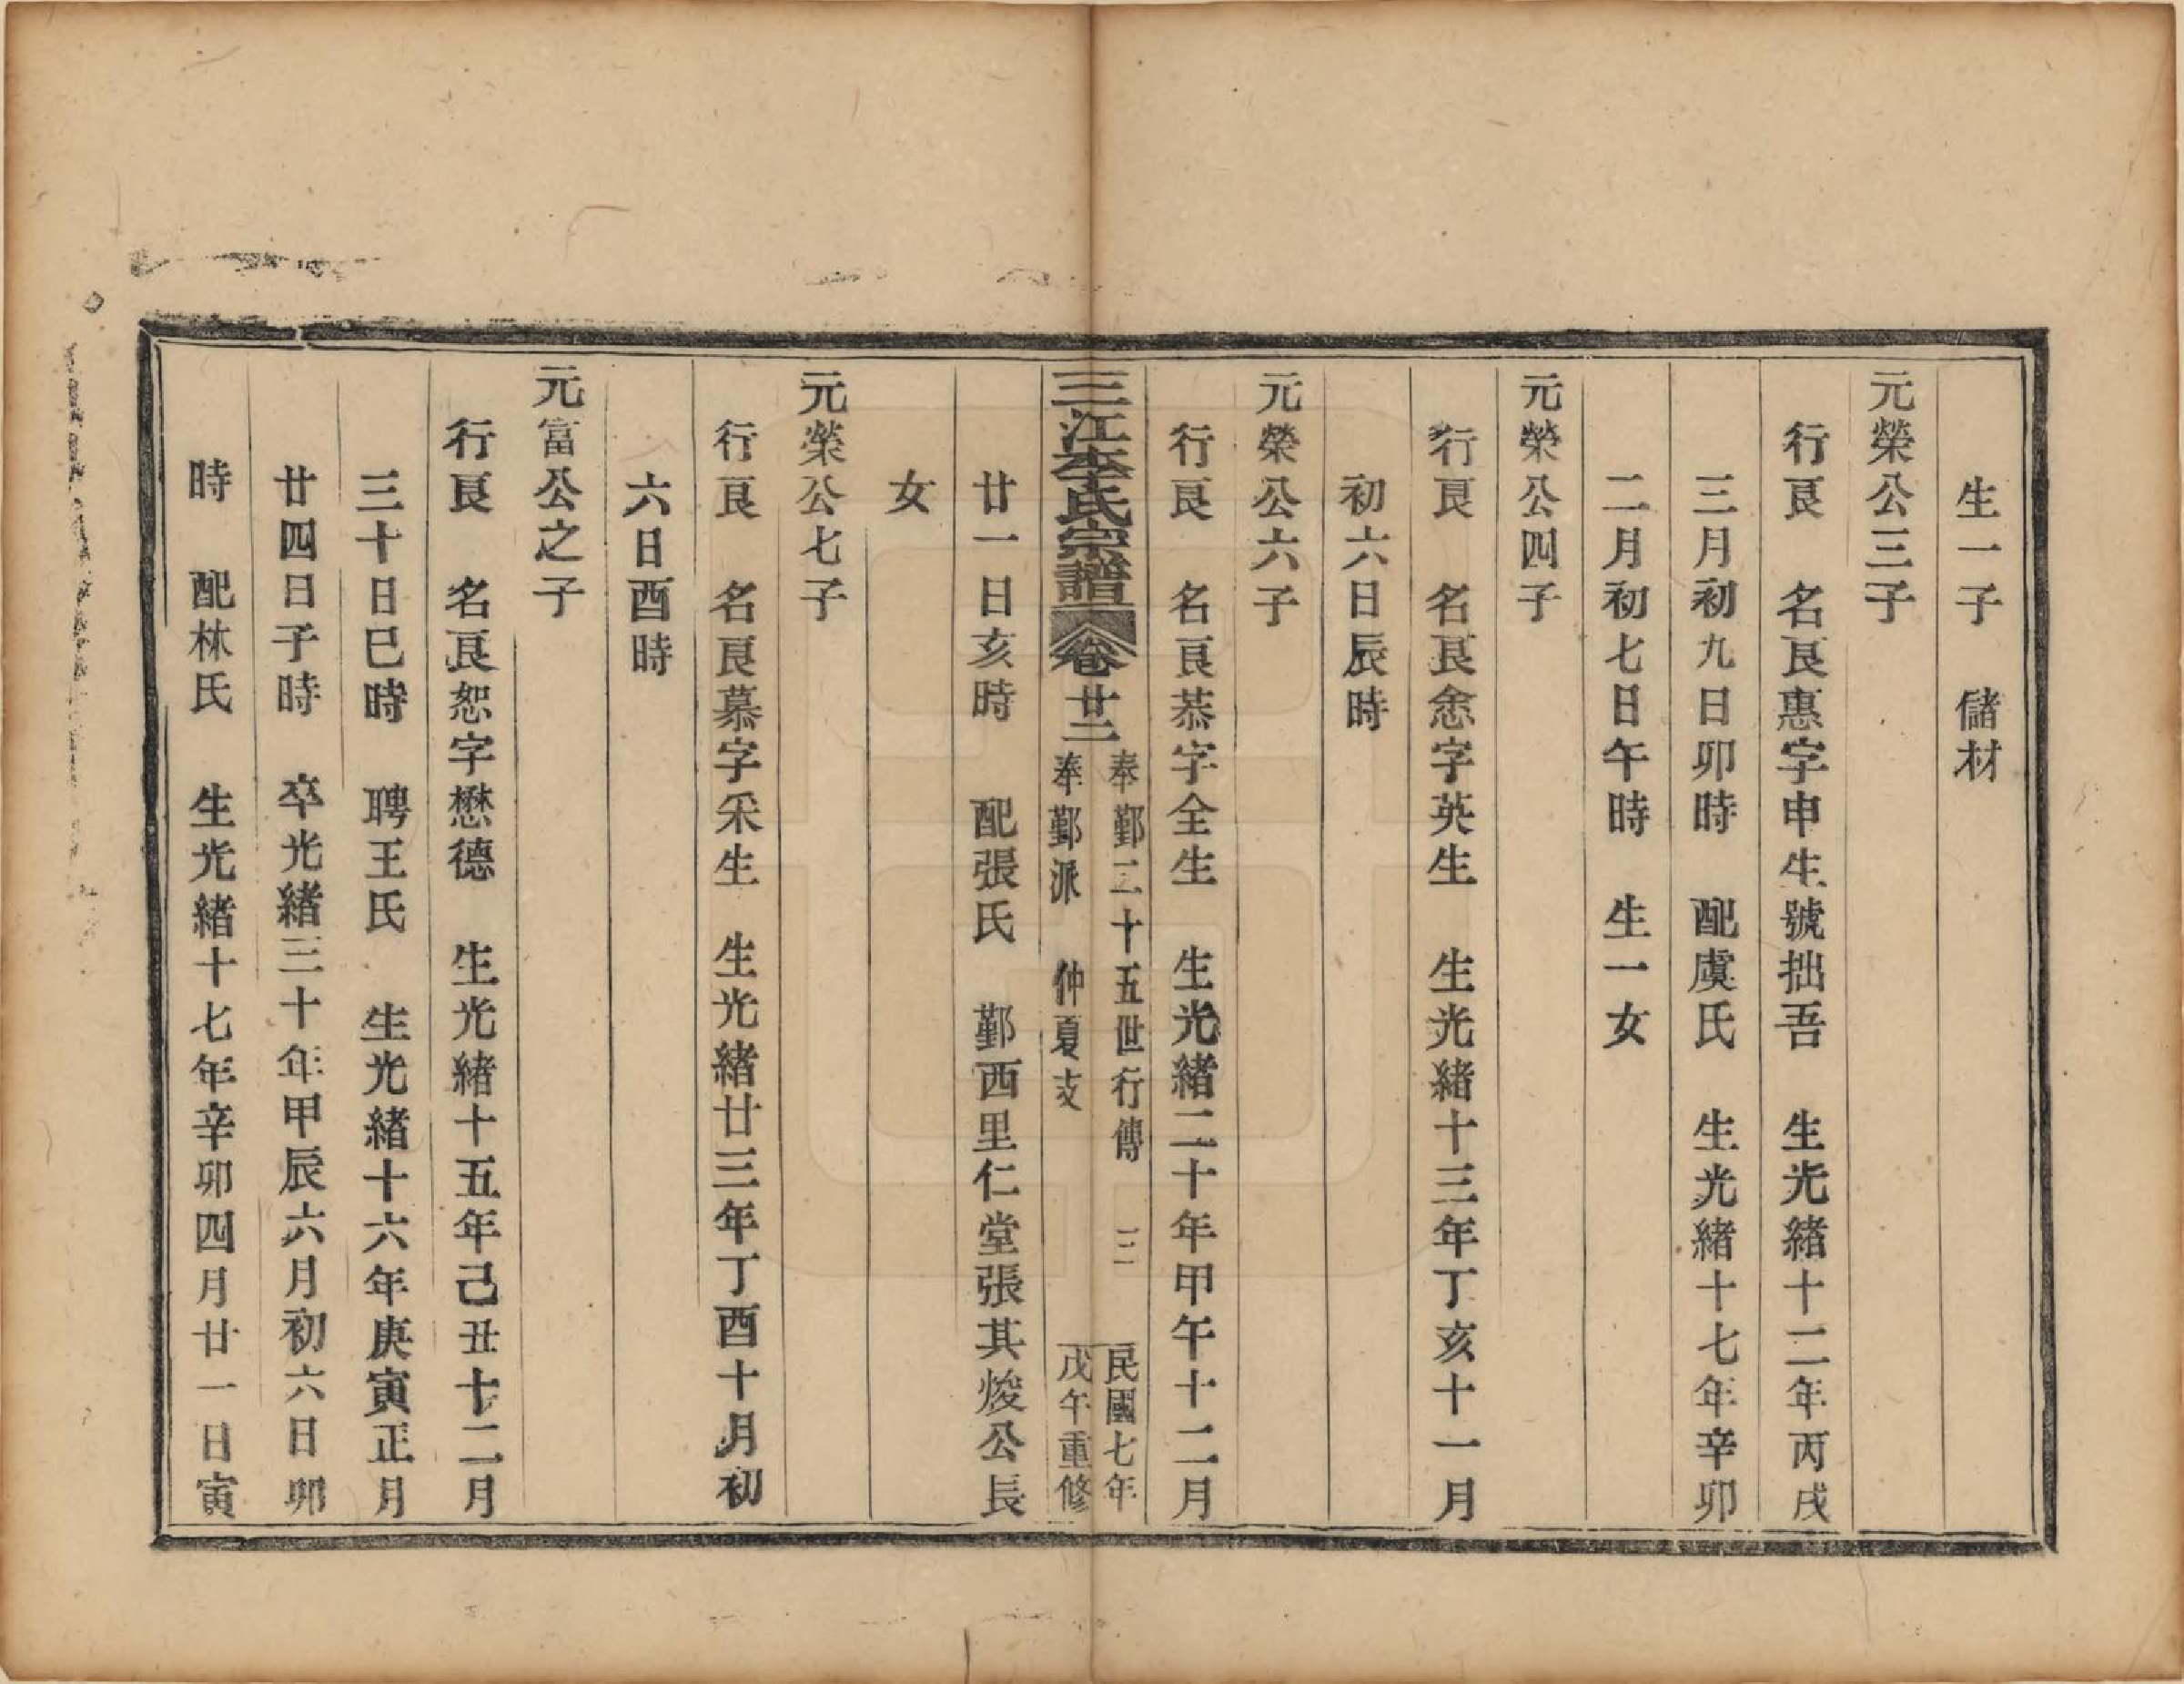 生一子　儲材
元榮公三子
行良　名良惠字申生號拙吾　生光緒十二年丙戌
三月初九日卯時　配虞氏　生光緒十七年辛卯
二月初七日午時　生一女
元榮公四子
行良　名良悆字英生　生光緒十三年丁亥十一月
初六日辰時
元榮公六子
行良　名良恭字全生　生光緒二十年甲午十二月
三江李氏宗譜　卷廿二
奉鄞二十五世行傳　三
奉鄞派　仲夏支
民國七年
戊午重修
廿一日亥時　配張氏　鄞西里仁堂張其焌公長
女
元榮公七子
行良　名良慕字釆生　生光緒廿三年丁酉十月初
六日酉時
元富公之子
行良　名良恕字懋德　生光緒十五年己丑十二月
三十日巳時　聘王氏　生光緒十六年庚寅正月
廿四日子時　卒光緒三十年甲辰六月初六日卯
時　配林氏　生光緒十七年辛卯四月廿一日寅